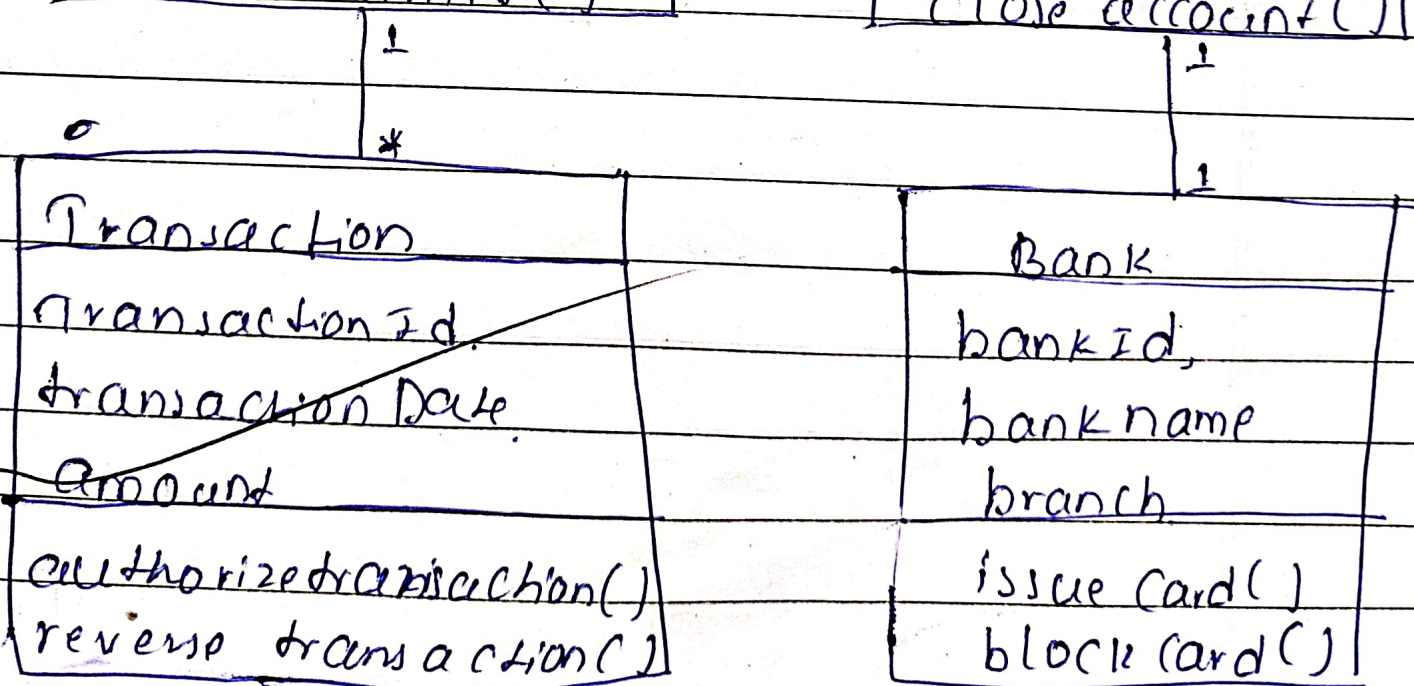 close account()
1
1
o
*
1
Transaction
Transaction Id.
transaction Date.
amount
authorizetransaction()
reverse transaction()
Bank
bank Id,
bank name
branch
issue Card()
block Card()